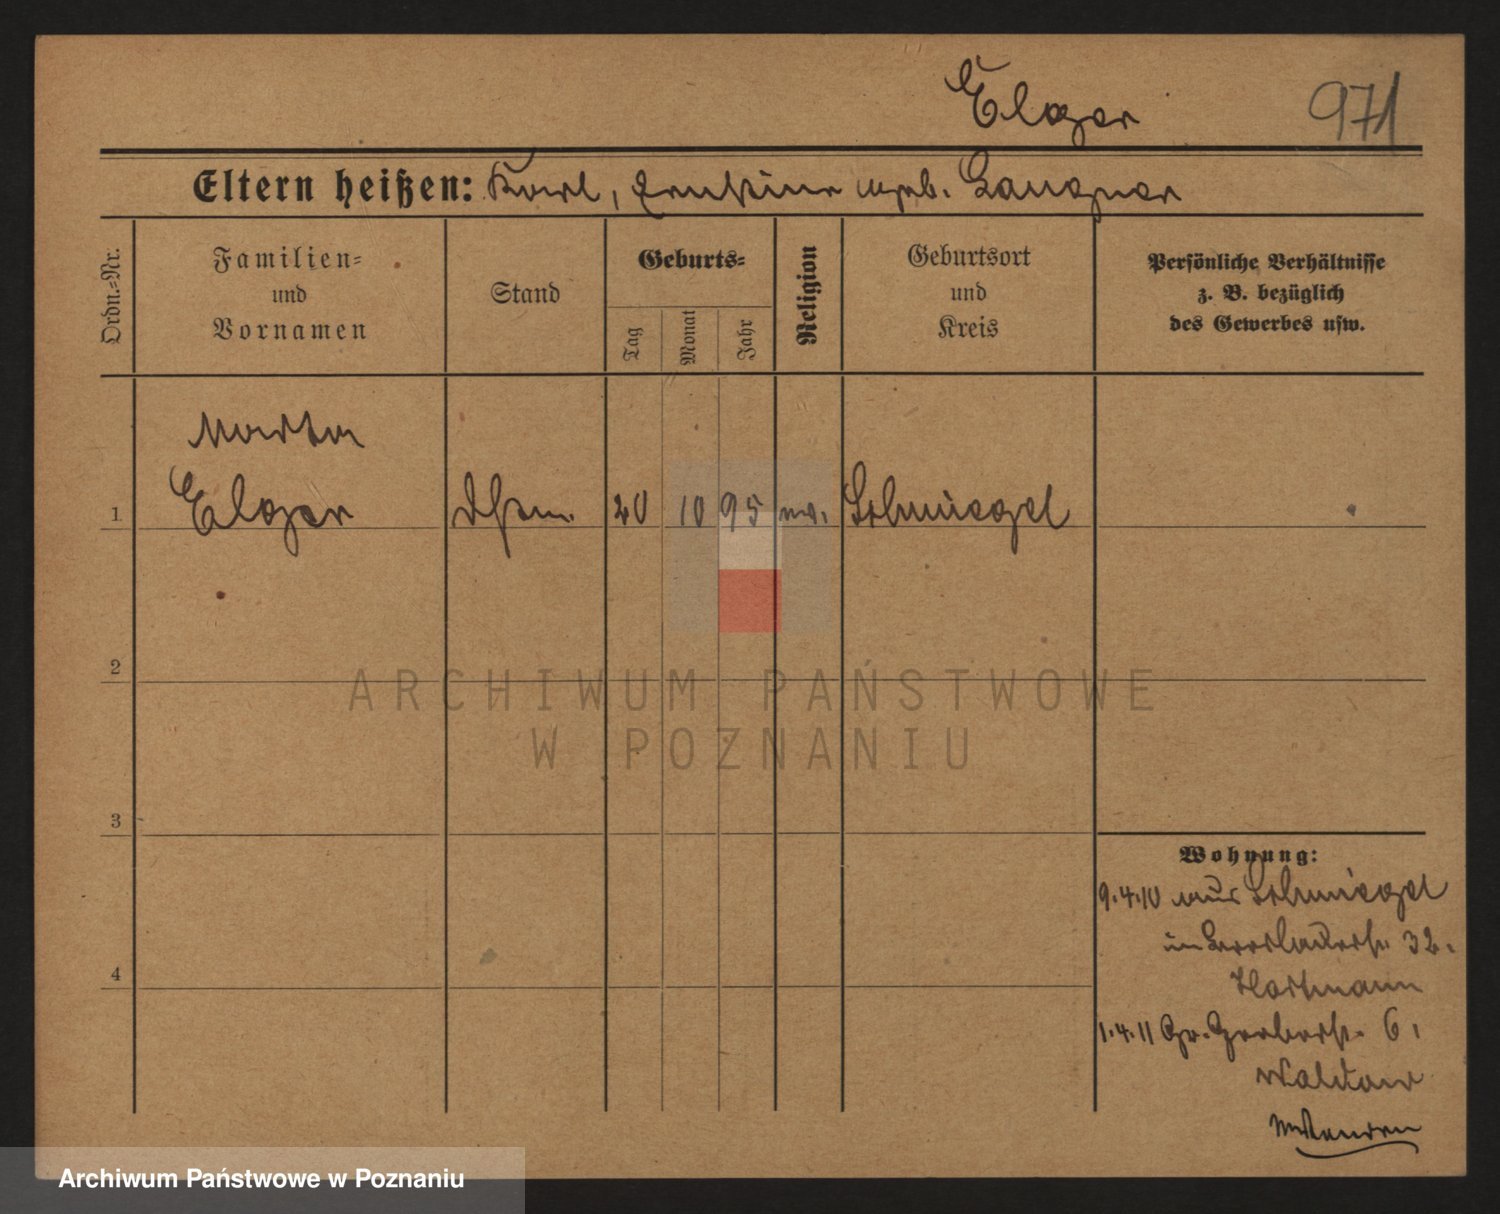 Elger
971
Eltern heißen: Karl, Ernstine geb. Langner
Ordn.-Nr.
Familien-
und
Vornamen
Stand
Geburts-
Tag
Monat
Jahr
Religion
Geburtsort
und
Kreis
Persönliche Verhältnisse
z. B. bezüglich
des Gewerbes usw.
Martha
1 Elger 20 10 95 ev. Schmiegel
2
3
4
ARCHIWUM PAŃSTWOWE
W POZNANIU
Wohnung:
9.4.10 aus Schmiegel
in Breslauerstr. 32.
Hartmann
1.4.11 Gr. Gerberstr. 6,
Archiwum Państwowe w Poznaniu